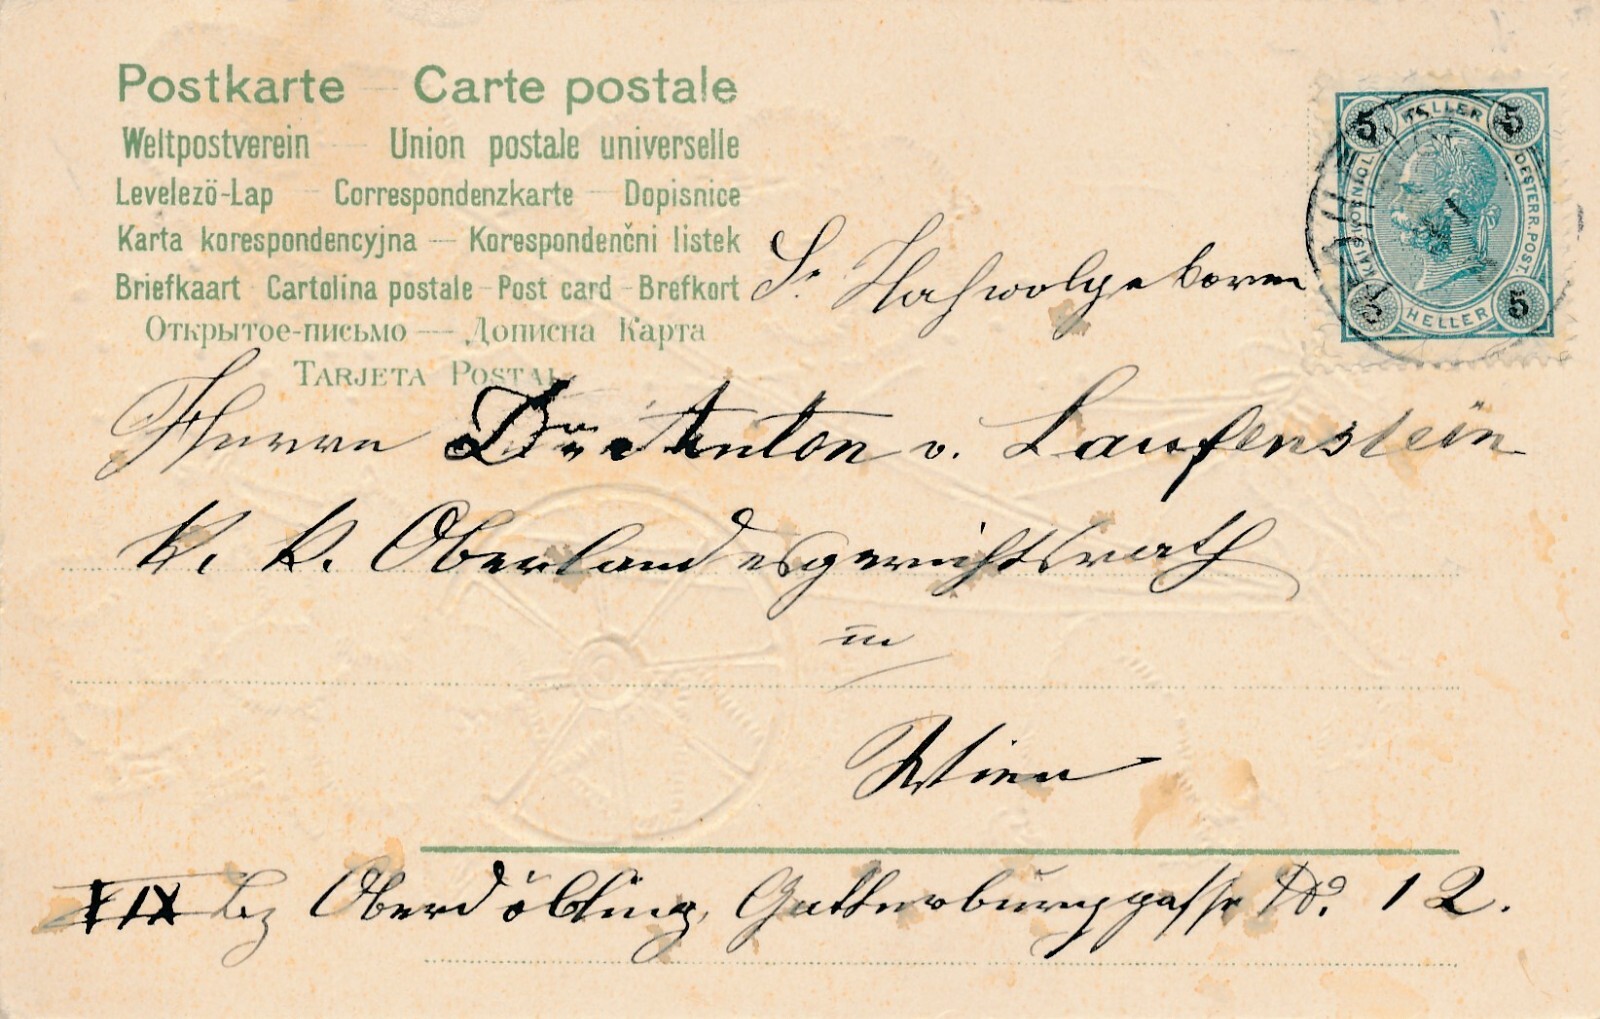 Postkarte — Carte postale
Weltpostverein — Union postale universelle
Levelező-Lap — Correspondenzkarte — Dopisnice
Karta korespondencyjna — Korespondenčni listek
Briefkaart - Cartolina postale - Post card - Brefkort
Открытое-письмо — Дописна Карта
TARJETA POSTAL
5 HELLER 5
KAIS. KÖNIGL. OESTERR. POST.
5 HELLER 5
Sr Hochwolgeboren
Herrn Dr Anton v. Laufenstein
K. K. Oberlandesgerichtsrath
in
Wien
XIX Bz Oberdöbling, Gatterburggasse No. 12.